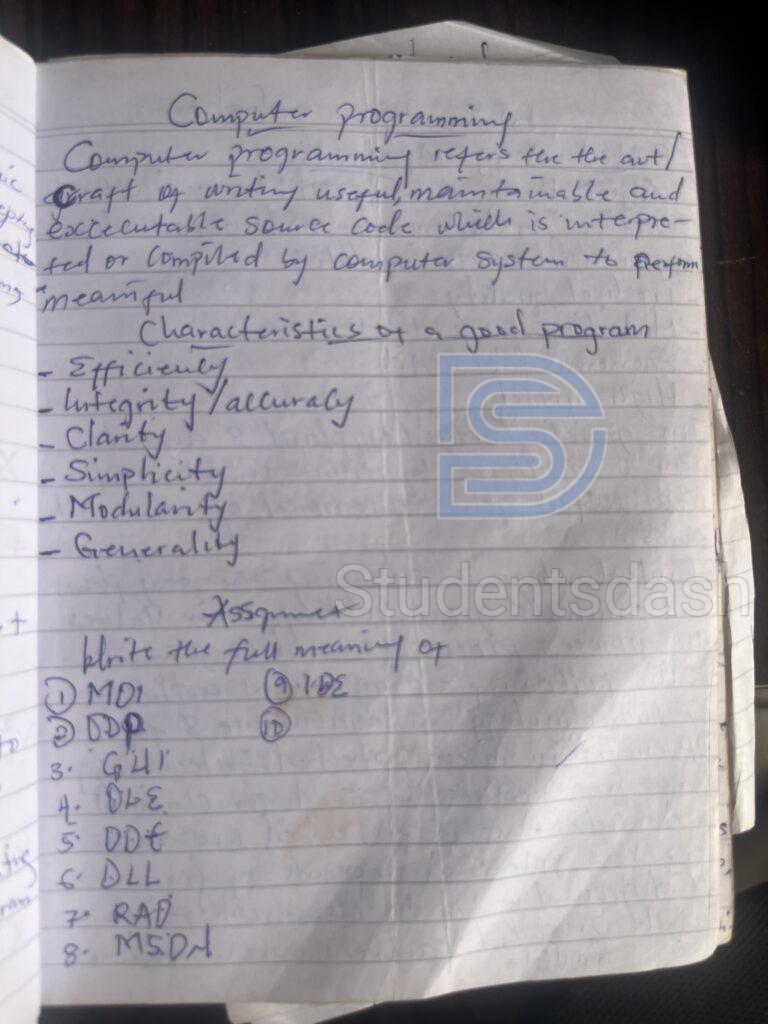 Computer programming
Computer programming refers the the art/
craft of writing useful, maintainable and
excecutable source code which is interpre-
ted or compiled by computer system to perform
meainful
Characteristics of a good program
- Efficiency
- Integrity/accuracy
- Clarity
- Simplicity
- Modularity
- Generality
Studentsdash
Assignment
Write the full meaning of
① MDI ⑨ IDE
② DDP ⑩
3. GUI
4. OLE
5. DDE
6. DLL
7. RAD
8. MSDN